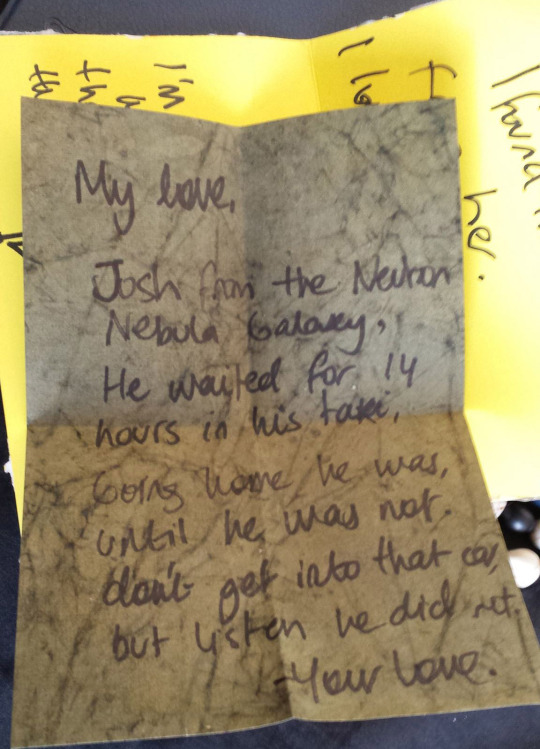 My love,
Josh from the Neutron
Nebula Galaxey,
He waited for 14
hours in his taxi,
Going home he was,
until he was not.
don't get into that car,
but listen he did not.
-Your Love.
I'm
th
I found
her.